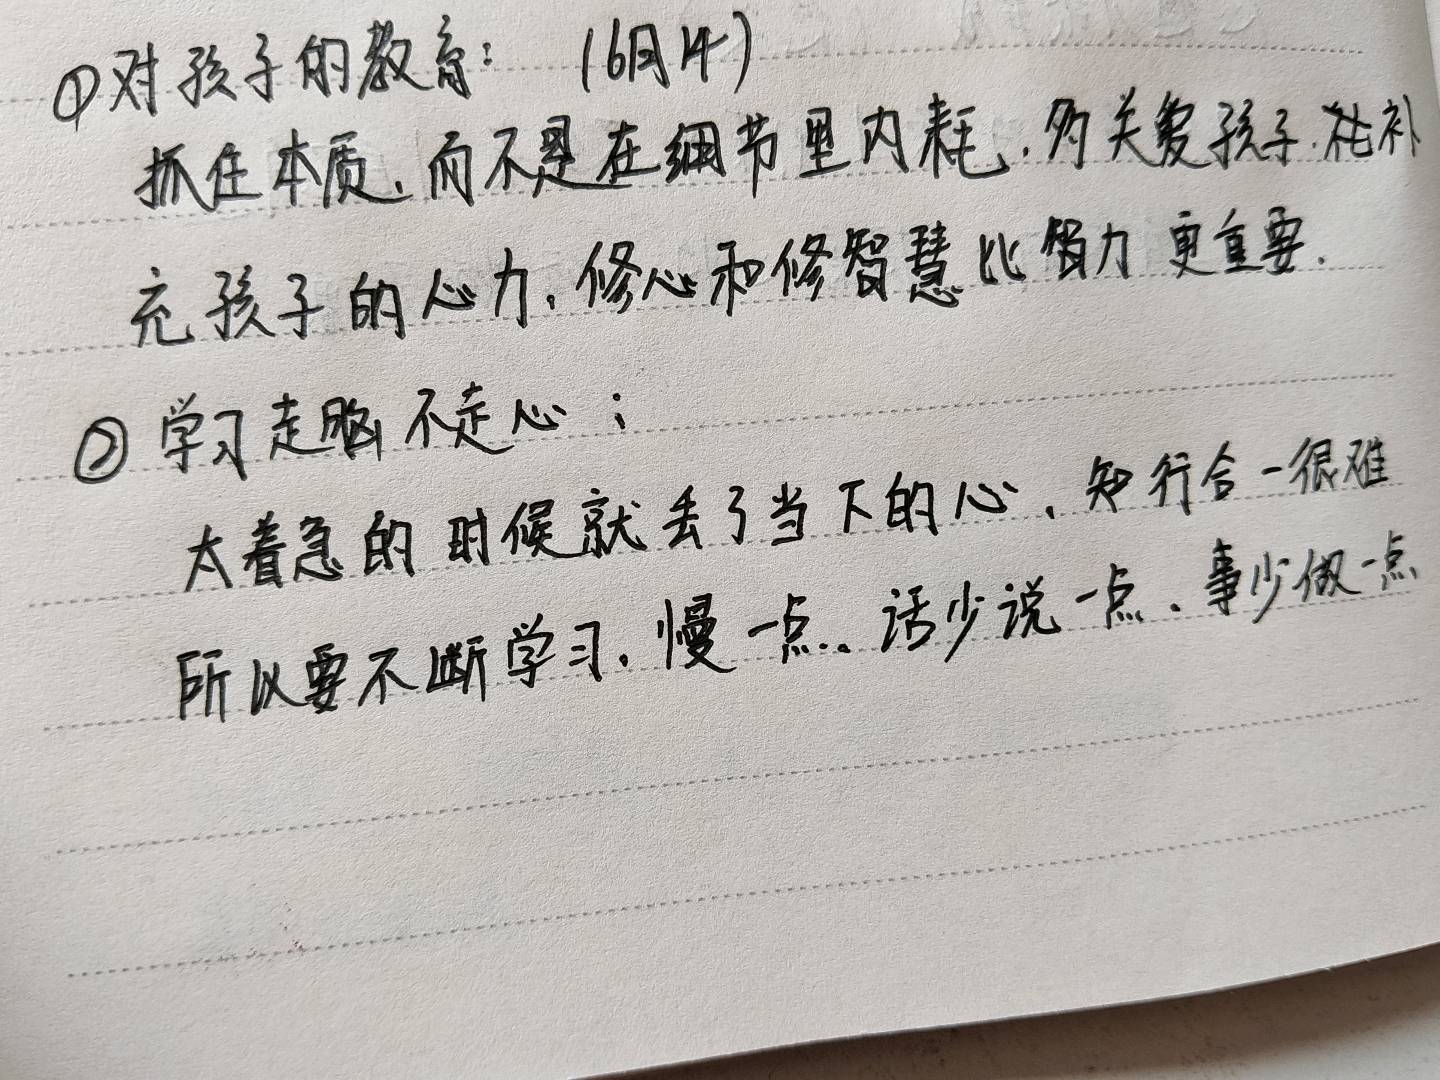 ①对孩子的教育：（6月14）
抓住本质，而不是在细节里内耗，多关爱孩子，在补
充孩子的心力，修心和修智慧比智力更重要．
②学习走脑不走心；
太着急的时候就丢了当下的心、知行合一很难
所以要不断学习，慢一点、话少说一点、事少做一点